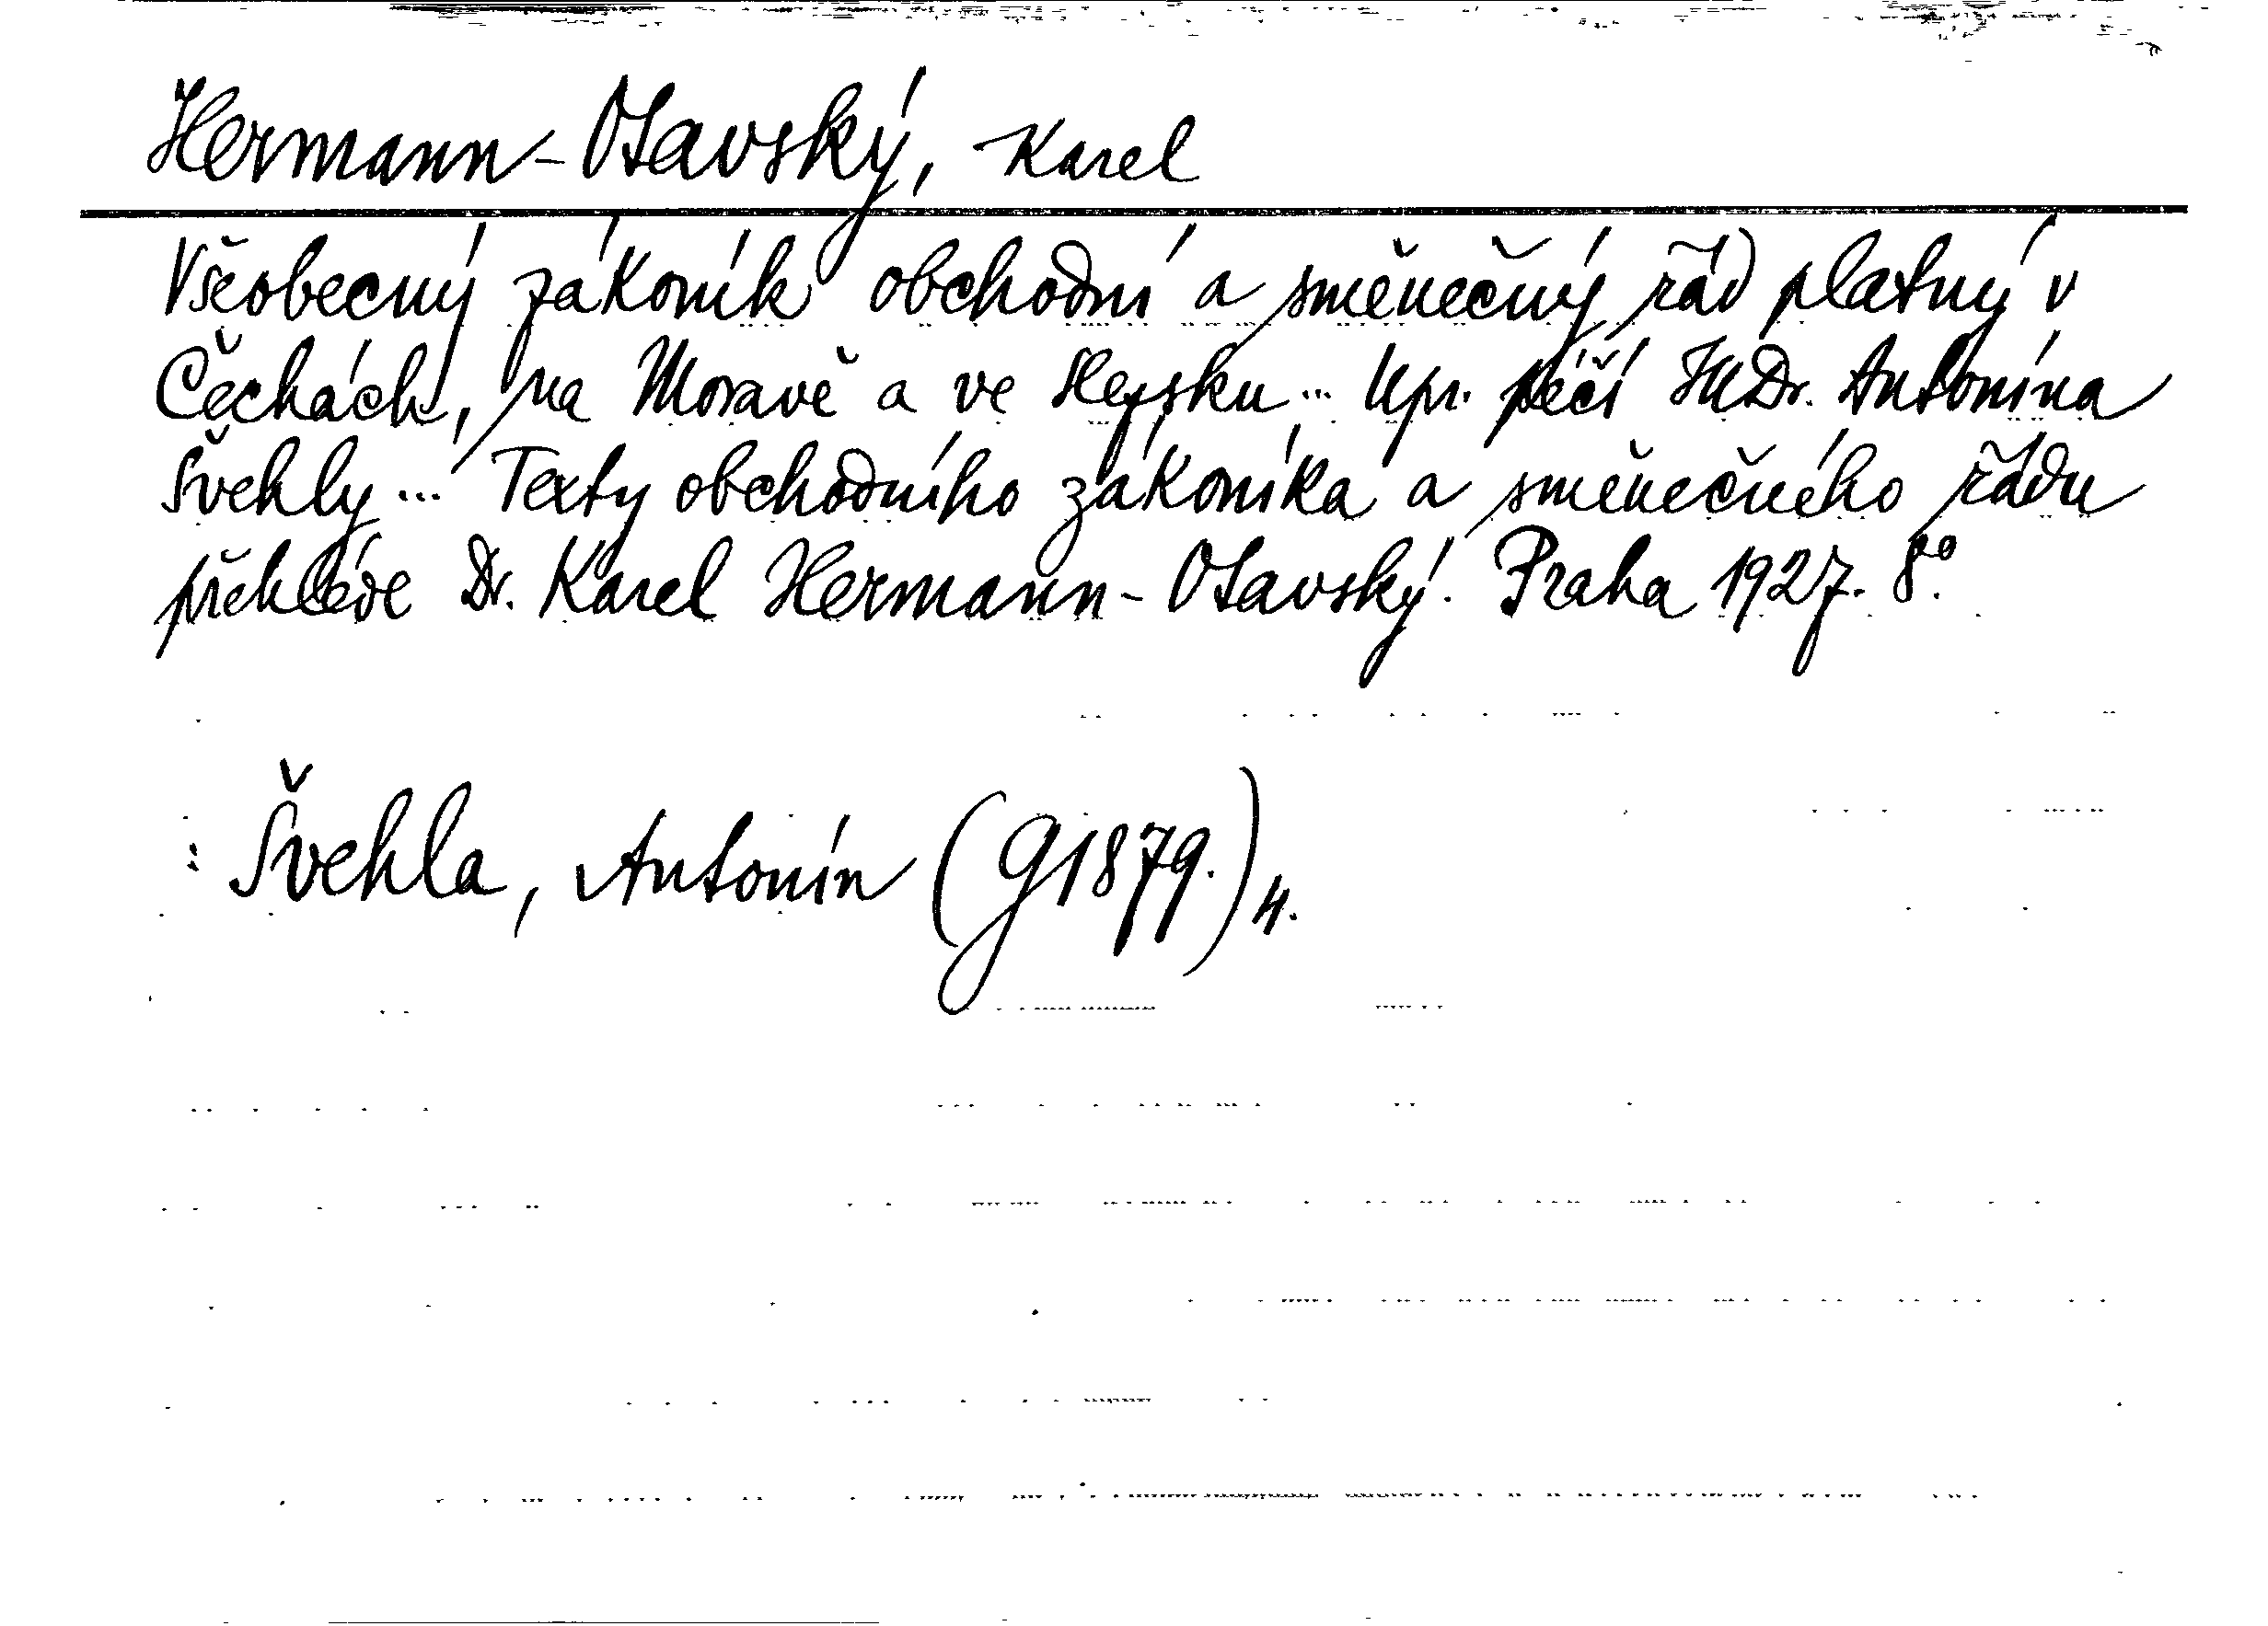 Hermann-Otavský, Karel
Všeobecný zákoník obchodní a směnečný řád platný v
Čechách, na Moravě a ve Slezsku... Upr. péčí JUDr. Antonína
Švehly... Texty obchodního zákoníka a směnečného řádu
přehlédl Dr. Karel Hermann-Otavský. Praha 1927. 8°.
: Švehla, Antonín (G1879.) 4.